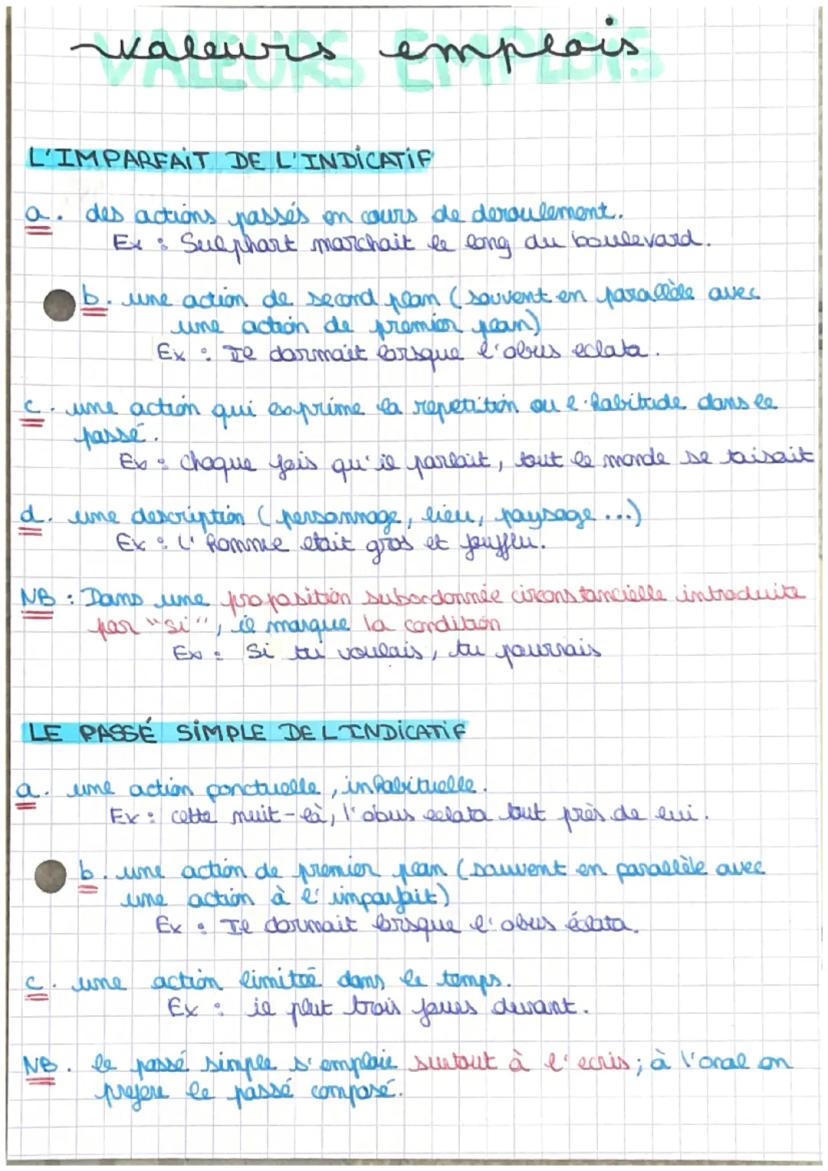 valeurs emplois
VALEURS EMPLOIS
L'IMPARFAIT DE L'INDICATIF
a. des actions passés en cours de deroulement.
Ex : Sulphart marchait le long du boulevard.
b. une action de second plan (souvent en parallèle avec
une action de premier plan)
Ex : Il dormait lorsque l'obus eclata.
c. une action qui exprime la repetition ou l'habitude dans le
passé.
Ex : chaque fois qu'il parlait, tout le monde se taisait
d. une description (personnage, lieu, paysage ...)
Ex : L'homme etait gros et joufflu.
NB : Dans une proposition subordonnée circonstancielle introduite
par "si", il marque la condition
Ex : Si tu voulais, tu pourrais
LE PASSÉ SIMPLE DE L'INDICATIF
a. une action ponctuelle, inhabituelle.
Ex : cette nuit-là, l'obus eclata tout près de lui.
b. une action de premier plan (souvent en parallèle avec
une action à l'imparfait)
Ex : Il dormait lorsque l'obus éclata.
c. une action limitée dans le temps.
Ex : il plut trois jours durant.
NB. le passé simple s'emploie surtout à l'ecris ; à l'oral on
prefere le passé composé.